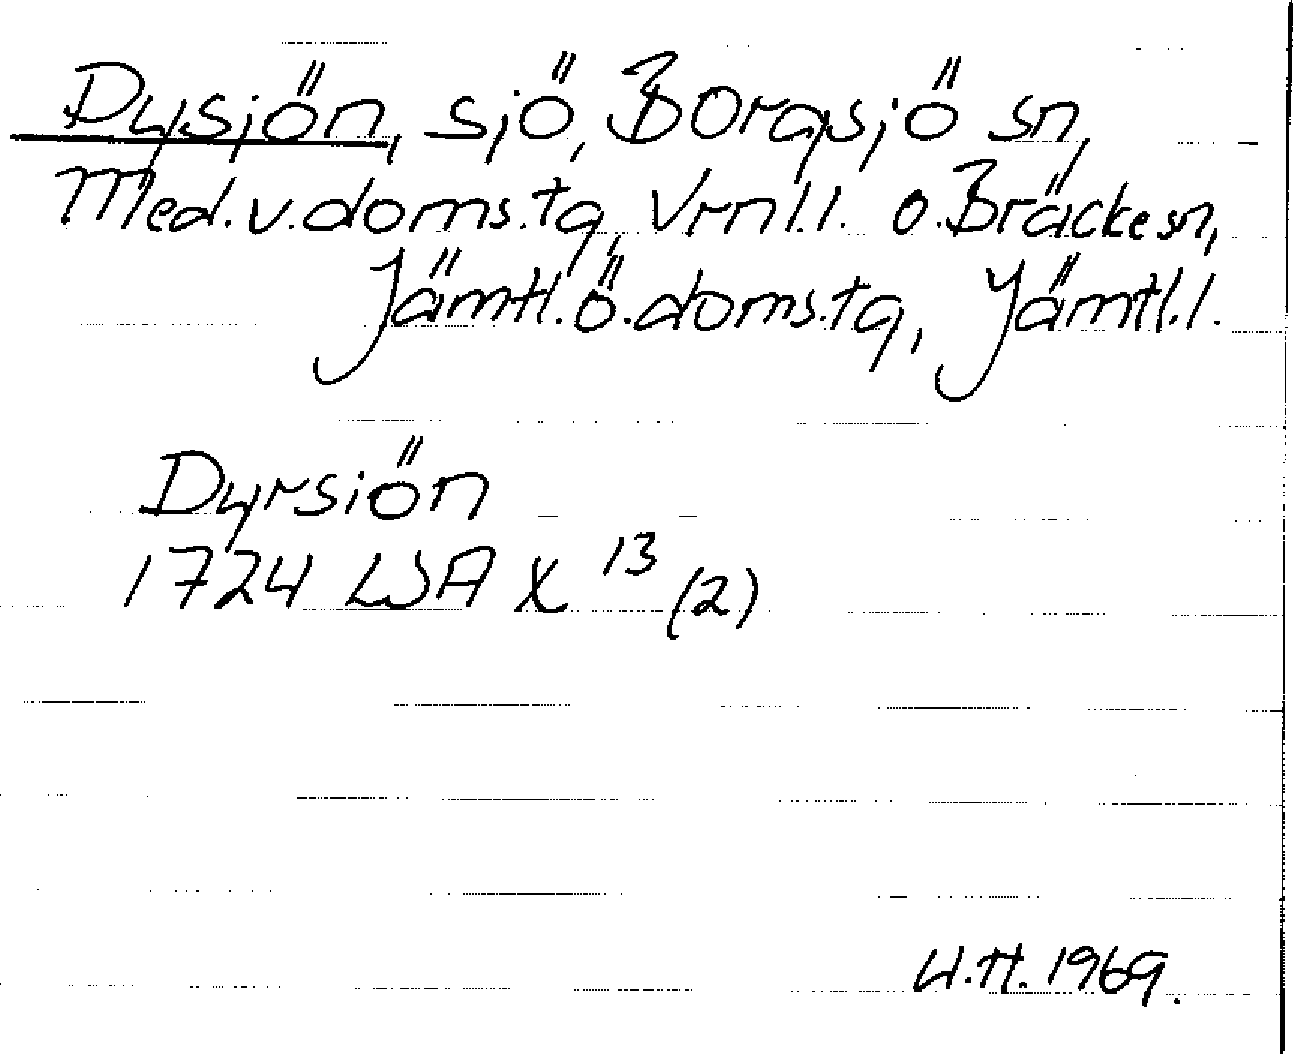 Dysjön, sjö, Borgsjö sn,
Med.v.doms.tg, Vrnl.l. o. Bräcke sn,
Jämtl.ö.doms.tg, Jämtl.l.
Dyrsiön
1724 LSA X 13 (2)
U.H. 1969.